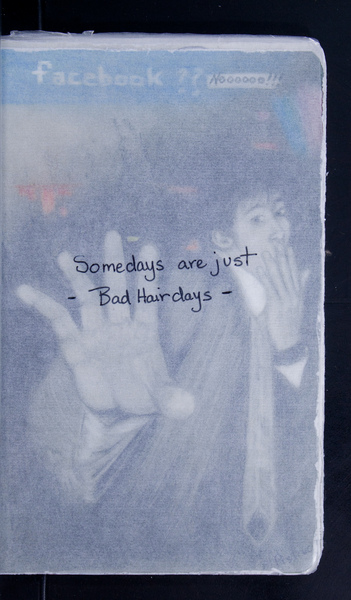 facebook ?? Noooooo!!!
Somedays are just
- Bad Hairdays -